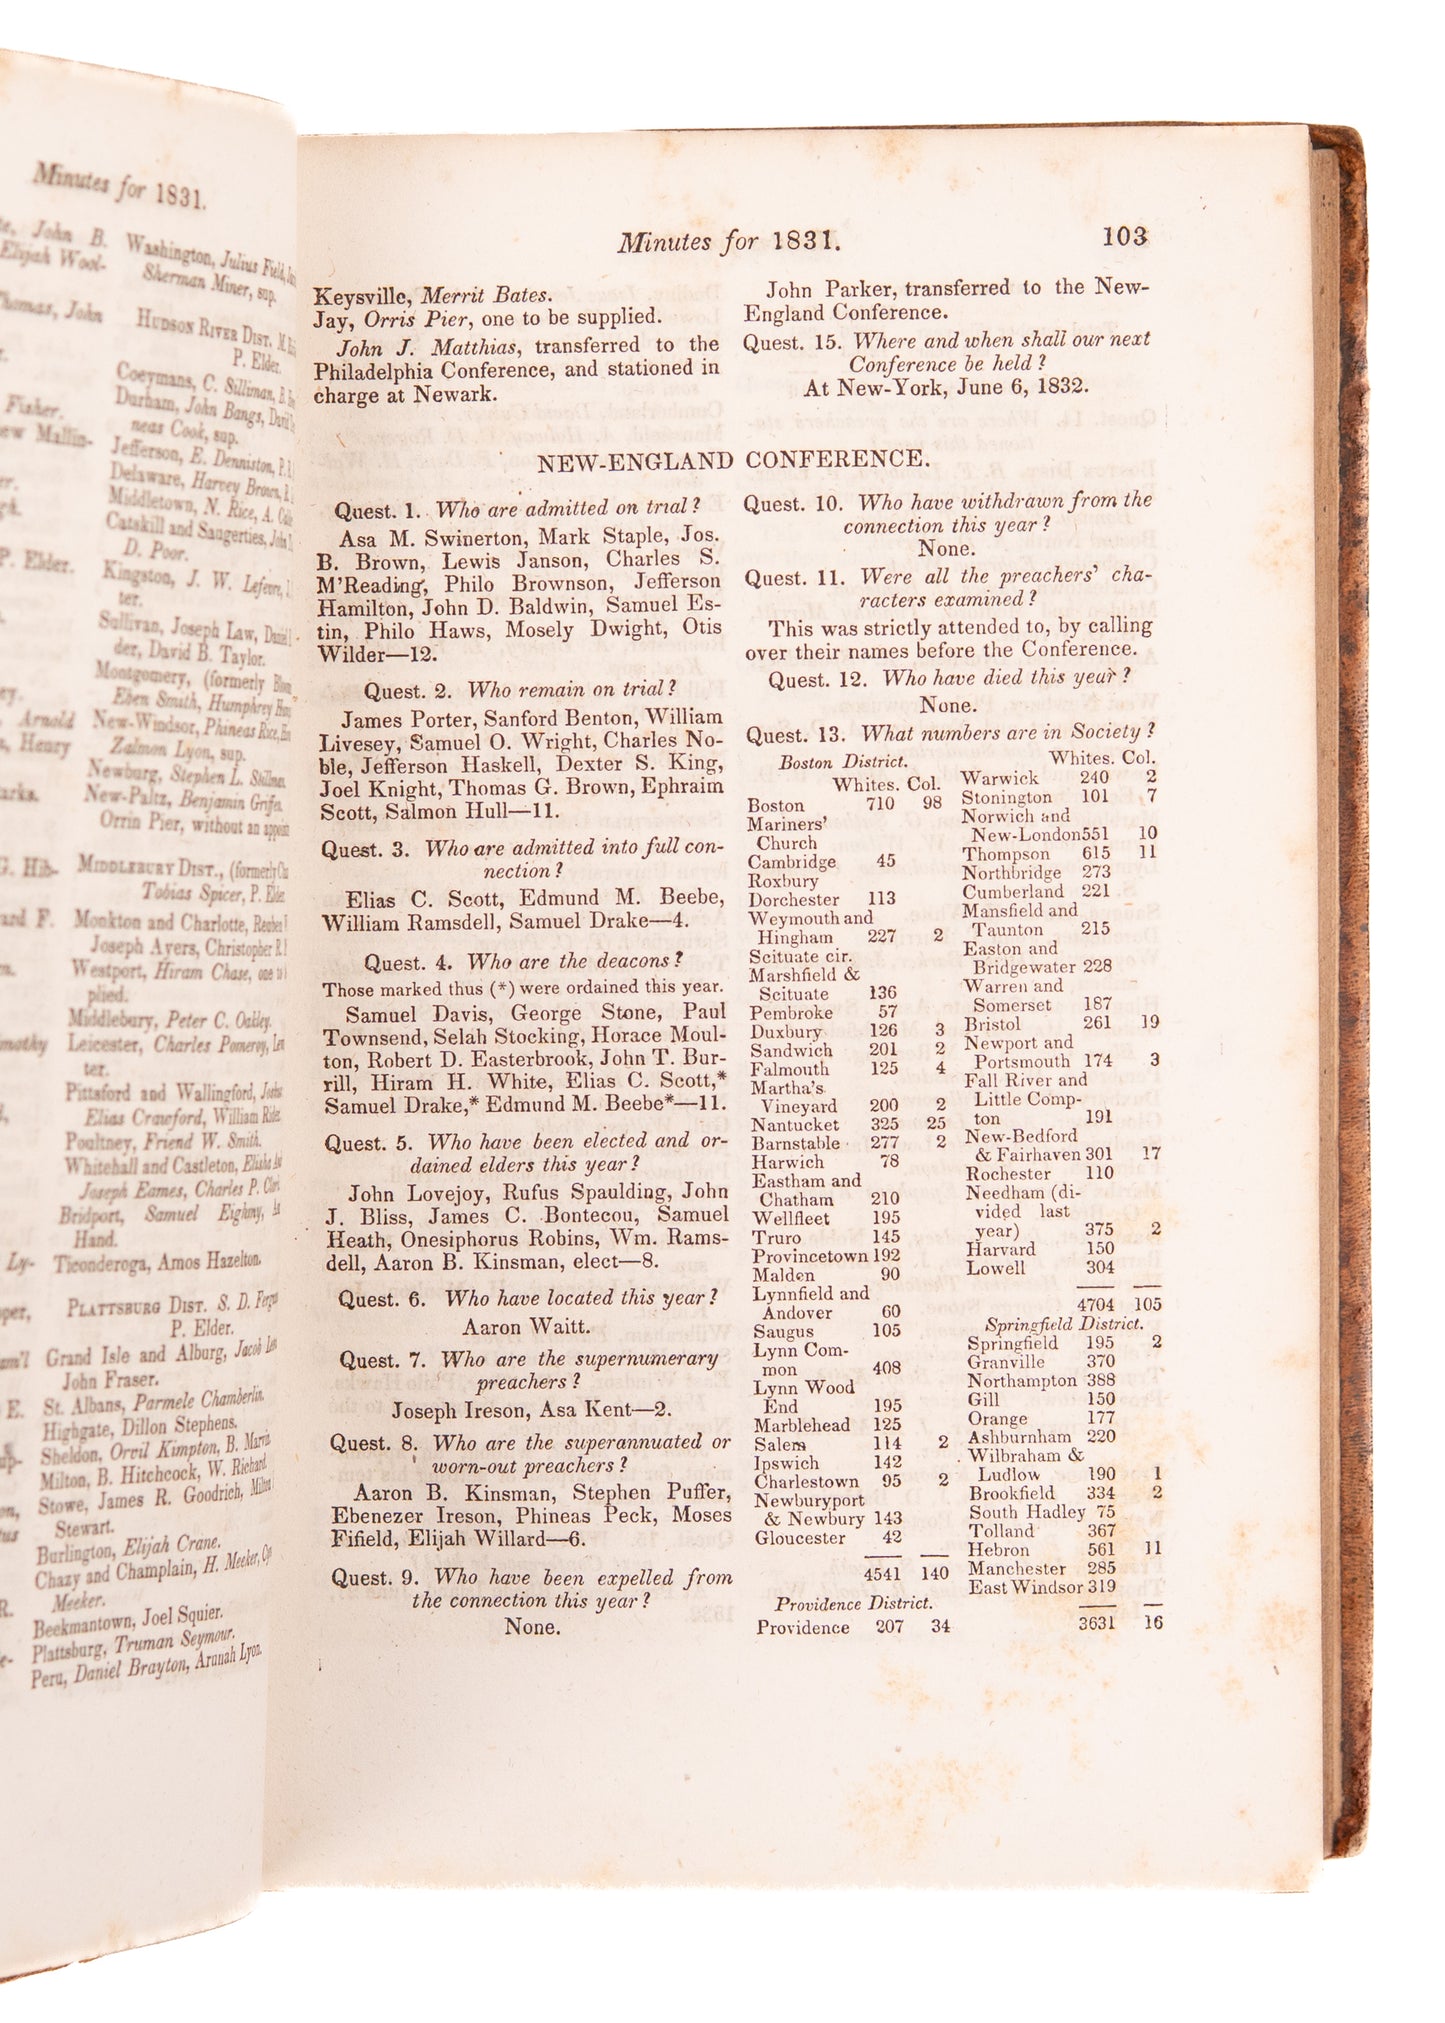 Minutes for 1831.
John B.
Elijah Wool-
Thomas, John
Fisher.
Mallin-
P. Elder.
Arnold
Henry
Washington, Julius Field,
Sherman Miner, sup.
HUDSON RIVER DIST.
P. Elder.
Coeymans, C. Silliman,
Durham, John Bangs,
neas Cook, sup.
Jefferson, E. Denniston,
Delaware, Harvey Brown,
Middletown, N. Rice, A.
Catskill and Saugerties,
D. Poor.
Kingston, J. W. Lefevre,
ter.
Sullivan, Joseph Law,
der, David B. Taylor.
Montgomery, (formerly
Eben Smith, Humphrey
New-Windsor, Phineas Rice,
Zalmon Lyon, sup.
Newburg, Stephen L.
New-Paltz, Benjamin
Orrin Pier, without an
MIDDLEBURY DIST., (formerly
Tobias Spicer, P. Elder.
Monkton and Charlotte,
Joseph Ayers, Christopher
Westport, Hiram Chase, one
plied.
Middlebury, Peter C. Oakley.
Leicester, Charles Pomeroy,
ter.
Pittsford and Wallingford,
Elias Crawford, William
Poultney, Friend W. Smith.
Whitehall and Castleton,
Joseph Eames, Charles P.
Bridport, Samuel Eighmy,
Hand.
Ticonderoga, Amos Hazelton.
PLATTSBURG DIST. S. D.
P. Elder.
Grand Isle and Alburg, Jacob
John Fraser.
St. Albans, Parmele Chamberlin.
Highgate, Dillon Stephens.
Sheldon, Orvil Kimpton, B.
Milton, B. Hitchcock, W. Richard
Stowe, James R. Goodrich,
Stewart.
Burlington, Elijah Crane.
Chazy and Champlain, H. Meeker,
Meeker.
Beekmantown, Joel Squier.
Plattsburg, Truman Seymour.
Peru, Daniel Brayton, Arunah Lyon.
Minutes for 1831. 103
Keysville, Merrit Bates.
Jay, Orris Pier, one to be supplied.
John J. Matthias, transferred to the
Philadelphia Conference, and stationed in
charge at Newark.
John Parker, transferred to the New-
England Conference.
Quest. 15. Where and when shall our next
Conference be held?
At New-York, June 6, 1832.
NEW-ENGLAND CONFERENCE.
Quest. 1. Who are admitted on trial?
Asa M. Swinerton, Mark Staple, Jos.
B. Brown, Lewis Janson, Charles S.
M'Reading, Philo Brownson, Jefferson
Hamilton, John D. Baldwin, Samuel Es-
tin, Philo Haws, Mosely Dwight, Otis
Wilder—12.
Quest. 2. Who remain on trial?
James Porter, Sanford Benton, William
Livesey, Samuel O. Wright, Charles No-
ble, Jefferson Haskell, Dexter S. King,
Joel Knight, Thomas G. Brown, Ephraim
Scott, Salmon Hull—11.
Quest. 3. Who are admitted into full con-
nection?
Elias C. Scott, Edmund M. Beebe,
William Ramsdell, Samuel Drake—4.
Quest. 4. Who are the deacons?
Those marked thus (*) were ordained this year.
Samuel Davis, George Stone, Paul
Townsend, Selah Stocking, Horace Moul-
ton, Robert D. Easterbrook, John T. Bur-
rill, Hiram H. White, Elias C. Scott,*
Samuel Drake,* Edmund M. Beebe*—11.
Quest. 5. Who have been elected and or-
dained elders this year?
John Lovejoy, Rufus Spaulding, John
J. Bliss, James C. Bontecou, Samuel
Heath, Onesiphorus Robins, Wm. Rams-
dell, Aaron B. Kinsman, elect—8.
Quest. 6. Who have located this year?
Aaron Waitt.
Quest. 7. Who are the supernumerary
preachers?
Joseph Ireson, Asa Kent—2.
Quest. 8. Who are the superannuated or
worn-out preachers?
Aaron B. Kinsman, Stephen Puffer,
Ebenezer Ireson, Phineas Peck, Moses
Fifield, Elijah Willard—6.
Quest. 9. Who have been expelled from
the connection this year?
None.
Quest. 10. Who have withdrawn from the
connection this year?
None.
Quest. 11. Were all the preachers' cha-
racters examined?
This was strictly attended to, by calling
over their names before the Conference.
Quest. 12. Who have died this year?
None.
Quest. 13. What numbers are in Society?
Boston District.
Whites. Col.
Boston 710 98
Mariners'
Church
Cambridge 45
Roxbury
Dorchester 113
Weymouth and
Hingham 227 2
Scituate cir.
Marshfield &
Scituate 136
Pembroke 57
Duxbury 126 3
Sandwich 201 2
Falmouth 125 4
Martha's
Vineyard 200 2
Nantucket 325 25
Barnstable 277 2
Harwich 78
Eastham and
Chatham 210
Wellfleet 195
Truro 145
Provincetown 192
Malden 90
Lynnfield and
Andover 60
Saugus 105
Lynn Com-
mon 408
Lynn Wood
End 195
Marblehead 125
Salem 114 2
Ipswich 142
Charlestown 95 2
Newburyport
& Newbury 143
Gloucester 42
4541 140
Providence District.
Providence 207 34
Whites. Col.
Warwick 240 2
Stonington 101 7
Norwich and
New-London 551 10
Thompson 615 11
Northbridge 273
Cumberland 221
Mansfield and
Taunton 215
Easton and
Bridgewater 228
Warren and
Somerset 187
Bristol 261 19
Newport and
Portsmouth 174 3
Fall River and
Little Comp-
ton 191
New-Bedford
& Fairhaven 301 17
Rochester 110
Needham (di-
vided last
year) 375 2
Harvard 150
Lowell 304
4704 105
Springfield District.
Springfield 195 2
Granville 370
Northampton 388
Gill 150
Orange 177
Ashburnham 220
Wilbraham &
Ludlow 190 1
Brookfield 334 2
South Hadley 75
Tolland 367
Hebron 561 11
Manchester 285
East Windsor 319
3631 16